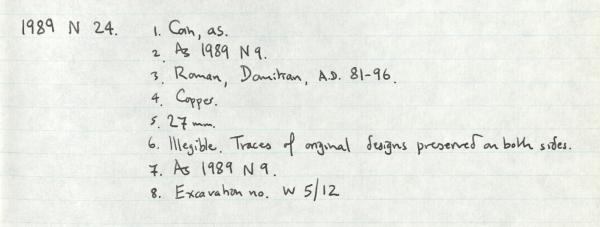 1989 N 24. 1. Coin, as.
2. As 1989 N 9.
3. Roman, Domitian, A.D. 81-96.
4. Copper.
5. 27 mm.
6. Illegible. Traces of original designs preserved on both sides.
7. As 1989 N 9.
8. Excavation no. W 5/12